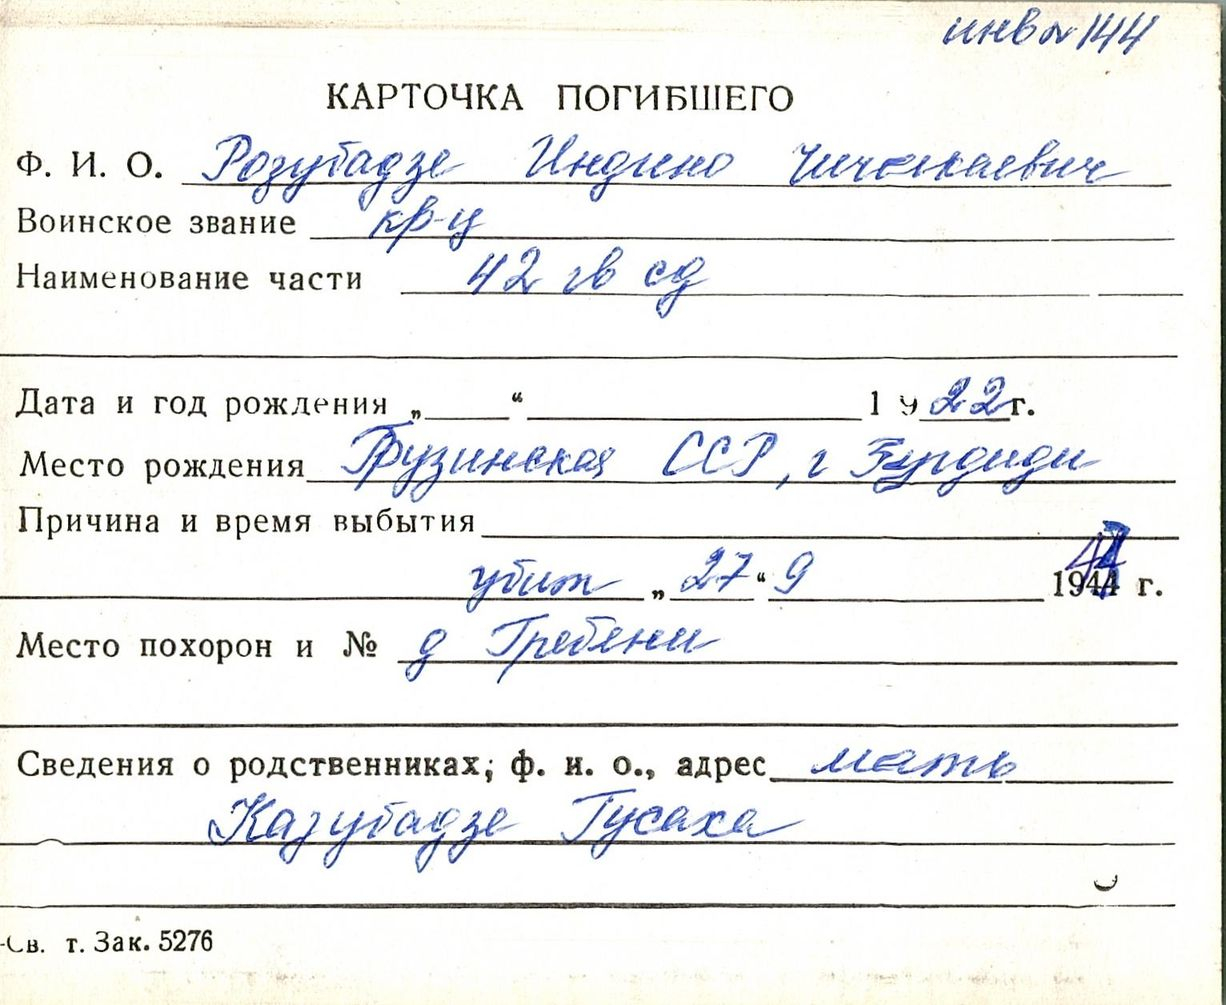 инв № 144
КАРТОЧКА ПОГИБШЕГО
Ф. И. О. Розубадзе Индико
Воинское звание кр-ц
Наименование части 42 гв сд
Дата и год рождения „ “ 1922 г.
Место рождения Грузинская ССР, г Зугдиди
Причина и время выбытия
убит „27“ 9 1944 г.
Место похорон и № д Гребени
Сведения о родственниках; ф. и. о., адрес мать
Казубадзе Гусаха
-Св. т. Зак. 5276